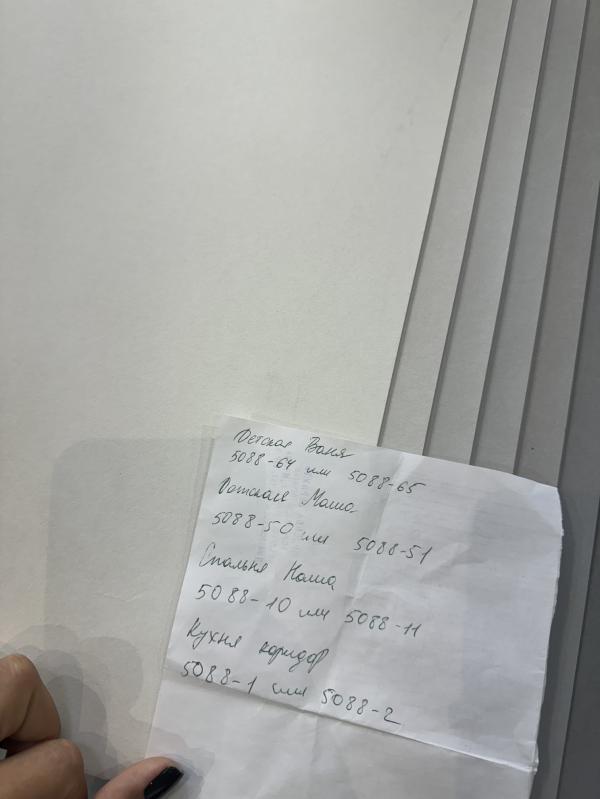 Детская Ваня
5088-64 или 5088-65
Детская Маша
5088-50 или 5088-51
Спальня Наша
5088-10 или 5088-11
Кухня коридор
5088-1 или 5088-2